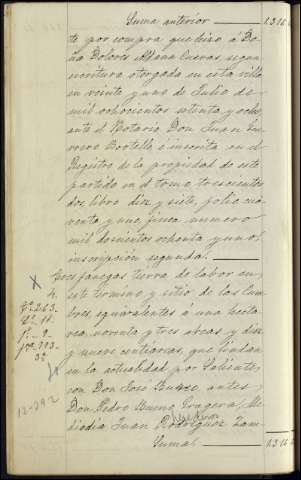 Suma anterior 1316
te por compra que hizo á Do-
ña Dolores Aldana Cuevas, segun
escritura otorgada en esta villa
en veinte y uno de Julio de
mil ochocientos setenta y ocho,
ante el Notario Don Juan Gue-
rrero Bortello é inscrita en el
Registro de la propiedad de este
partido en el tomo trescientos
dos, libro diez y siete, folio cua-
renta y uno, finca numero
mil doscientos ochenta y uno,
inscripcion segunda.
Tres fanegas tierra de labor en
este termino y sitio de las Cum-
bres, equivalentes á una hecta-
rea, noventa y tres areas, y diez
y nueve centiareas, que lindan
en la actualidad por Saliente,
con Don José Bueno, antes
Don Pedro Bueno Gragera, Me-
diodia Juan Rodriguez Zam-
Suma 1316
X
4.
Tº 263.
12-392